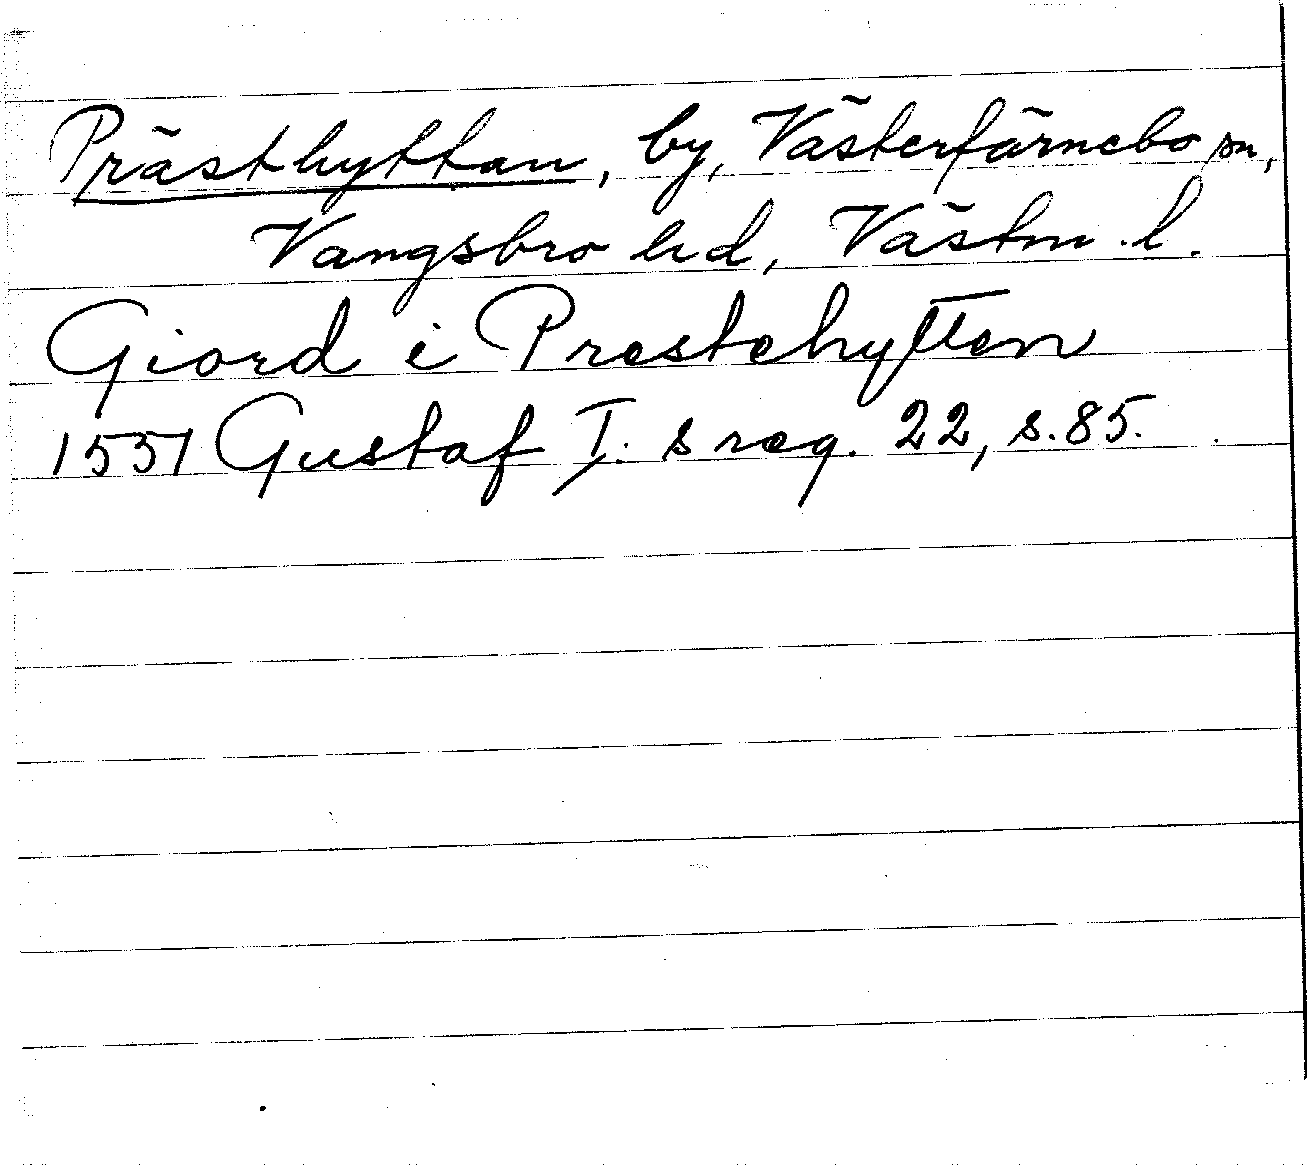 Prästhyttan, by, Västerfärnebo sn,
Vangsbro hd, Västm. l.
Giord i Prestehytten
1551 Gustaf I: s reg. 22, s. 85.